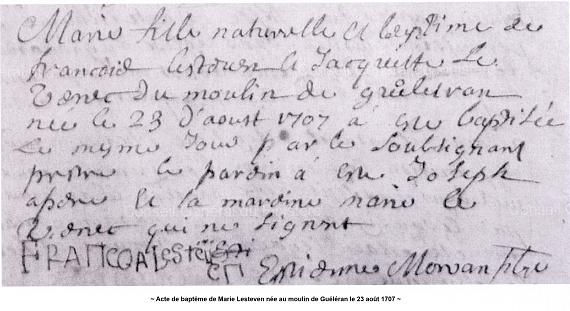 Marie fille naturelle et legitime de
francois lestuen et Jacquette Le
Venec du moulin de guelevan
nee le 23 d'aoust 1707 a ete baptisée
le mesme Jour par le soubsignant
prestre le parain a ete Joseph
apdre et la mardine marie le
Venec qui ne signent
FRANCOA LESTEVEN
Estienne Morvan ptre
~ Acte de baptême de Marie Lesteven née au moulin de Guéléran le 23 août 1707 ~